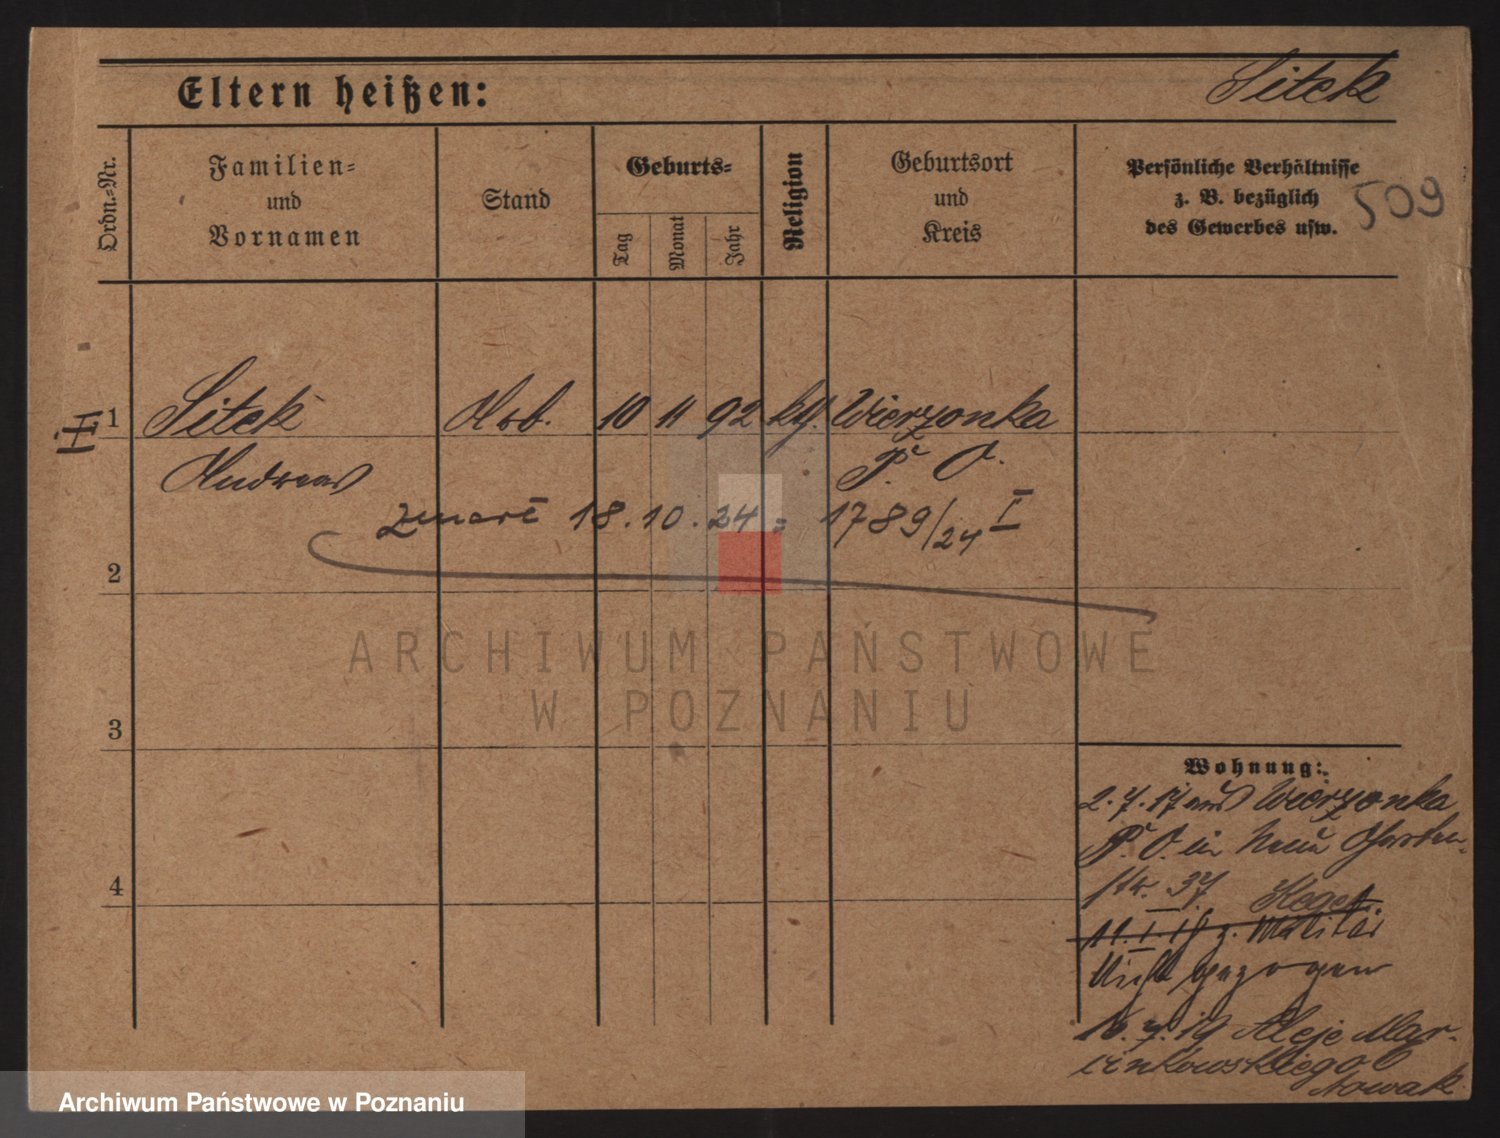 Eltern heißen:
Sitek
Ordn.-Nr.
Familien-
und
Vornamen
Stand
Geburts-
Tag
Monat
Jahr
Religion
Geburtsort
und
Kreis
Persönliche Verhältnisse
z. B. bezüglich
des Gewerbes usw.
509
I
1
Sitek
Arb.
10 11 92
kth.
Wierzonka
Andreas
P. O.
zmarł 18.10.24 = 1789/24 I
2
3
4
ARCHIWUM PAŃSTWOWE
W POZNANIU
Wohnung:
2.7.17 aus Wierzonka
P. O. in Neue Garten-
str. 37.
z. Militär
Nicht gezogen
16.7.19 Aleje Mar-
cinkowskiego
Nowak
Archiwum Państwowe w Poznaniu